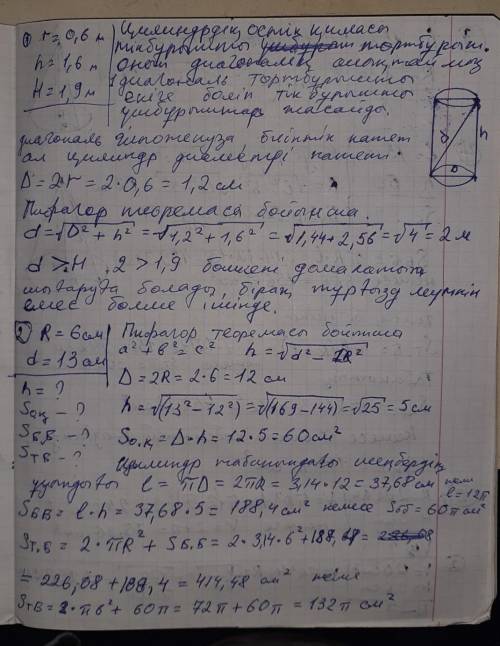 ① r = 0,6 м
h = 1,6 м
H = 1,9 м
Цилиндрдің остік қимасы
тікбұрышты төртбұрыш.
оның диагоналін анықтаймыз
диагональ төртбұрышты
екіге бөліп тік бұрышты
үшбұрыштар жасайды.
диагональ гипотенуза биіктік катет
ал цилиндр диаметрі катеті.
D = 2r = 2·0,6 = 1,2 см
Пифагор теоремасы бойынша.
d = √D² + h² = √1,2² + 1,6² = √1,44 + 2,56 = √4 = 2 м
d > H 2 > 1,9 бөлмені домалатып
шығаруға болады, бірақ тұрғызу мүмкін
емес бөлме ішінде.
d
h
D
② R = 6 см
d = 13 см
h = ?
Sоқ - ?
Sб.б. - ?
Sт.б - ?
Пифагор теоремасы бойынша
a² + b² = c² h = √d² - 2R²
D = 2R = 2·6 = 12 см
h = √(13² - 12²) = √(169 - 144) = √25 = 5 см
Sо.қ = D·h = 12·5 = 60 см²
Цилиндр табанындағы шеңбердің
ұзындығы l = πD = 2πR = 3,14·12 = 37,68 см неме
l = 12π
Sбб = l·h = 37,68·5 = 188,4 см² немесе Sбб = 60π см²
Sт.б = 2·πR² + Sб.б = 2·3,14·6² + 188,4 =
= 226,08 + 188,4 = 414,48 см² неме
Sтб = 2·π6² + 60π = 72π + 60π = 132π см²